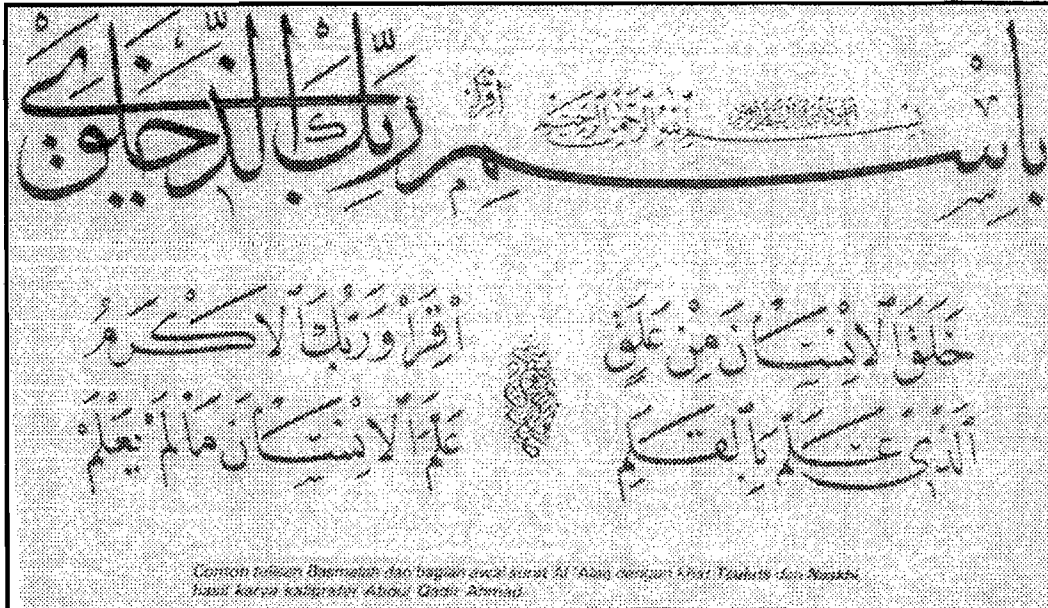 بِاسْمِ رَبِّكَ الَّذِي خَلَقَ
خَلَقَ الْاِنْسَانَ مِنْ عَلَقٍ اِقْرَأْ وَرَبُّكَ الْاَكْرَمُ
اَلَّذِي عَلَّمَ بِالْقَلَمِ عَلَّمَ الْاِنْسَانَ مَا لَمْ يَعْلَمْ
Contoh tulisan Basmalah dan bagian awal surat Al 'Alaq dengan khat Tsuluts dan Naskhi,
hasil karya kaligrafer Abdul Qadir Ahmad.